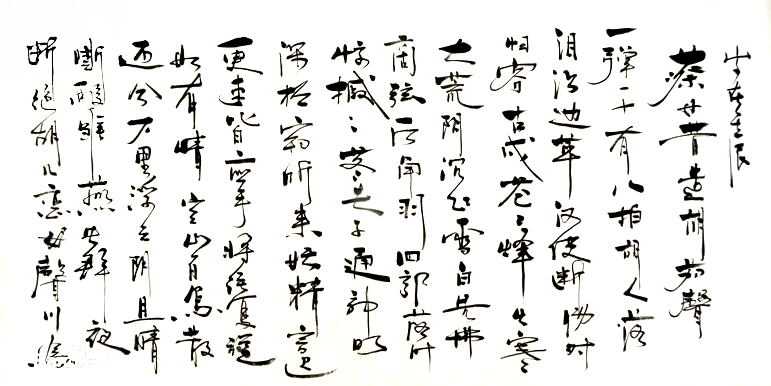 蔡女昔造胡笳聲
一弹一十有八拍胡人落
泪沾边草汉使断肠对
归客古戍苍々烽火寒
大荒阴沉飞雪白先拂
商弦后角羽四郊落叶
惊摵々董夫子通神明
深松窃听来妖精言迟
更速皆应手将往复旋
如有情空山百鸟散
还合万里浮云阴且晴
嘶酸雏燕失群夜
断绝胡儿恋母聲川为